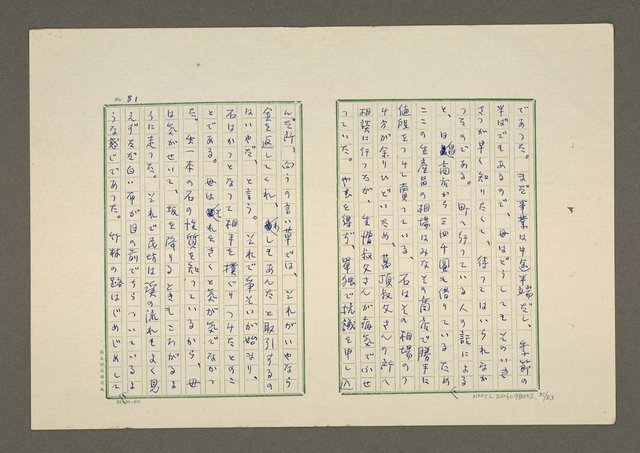 であった。まだ事業は中途半端だし、季節の
半ばでもあるので、母はどうしてもそのいき
さつが早く知りたくて、待ってはいられなか
ったのである。町へ行っている人の話による
と、は商店から三四千圓も借りているため
ここの生産苗の相場はみなその商店で勝手に
値段をつけて賣っている、石はその相場のつ
け方が余りひどいため、萬頂叔父さんの所へ
相談に行ったが、生憎叔父さんが病気でふせ
っていた。やむを得ず、單独で抗議を申し入
No. 81
んだ所、向うの言い草では、それがいやなら
金を返してくれ、しもあんたと取引するの
はいやだ、と言う。それで爭そいが始まり、
石はかっとなって相手を撲ぐりつけたとのこ
とである。母はそれをきくと気が気でなかっ
た。生一本の石の性質を知っているから、母
は気がせいて、坂を降りるときもころがるよ
うに走った。それで民坊は溪の流れもよく見
えず、ただ白い布が目の前でちらついているよ
うな感じであった。竹林の路はじめじめして
NMTL 20060980002, 81/83